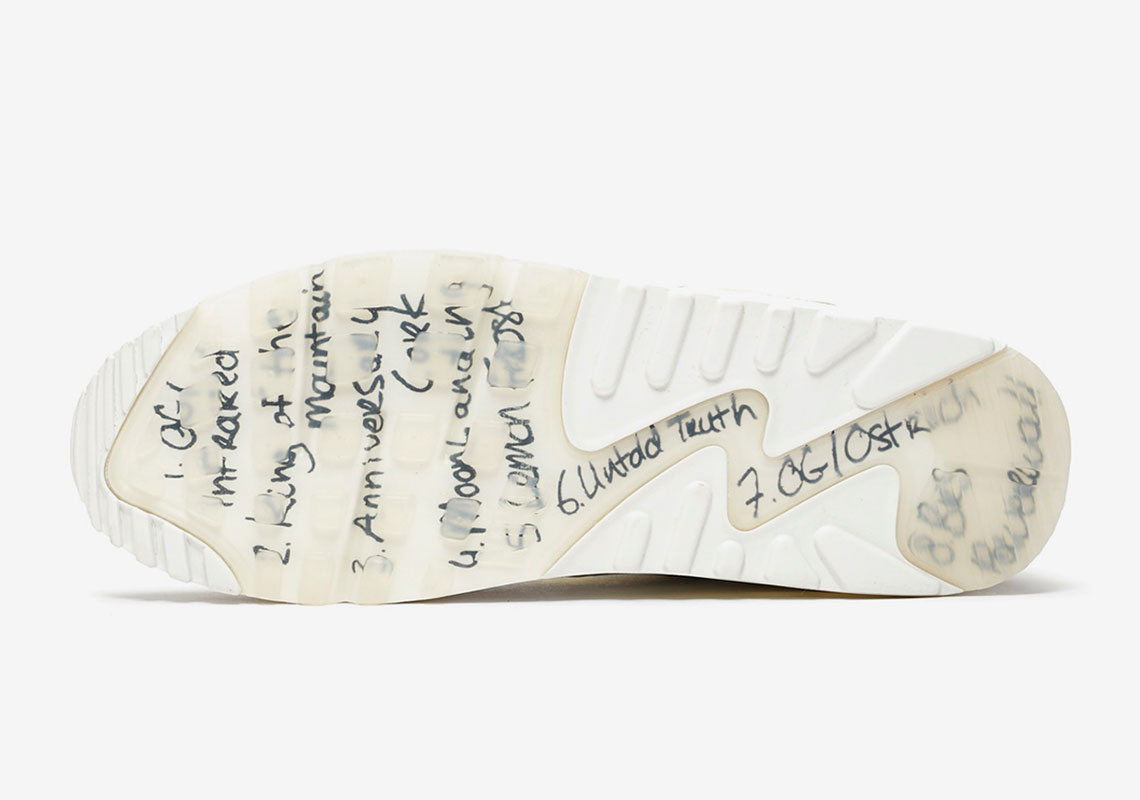 1. OG/
InfRaRed
2. King of the
Mountain
3. Anniversary
Cork
4. Moon Landing
5 Lemon Frost
6. Untold Truth
7. OG/Ostrich
8